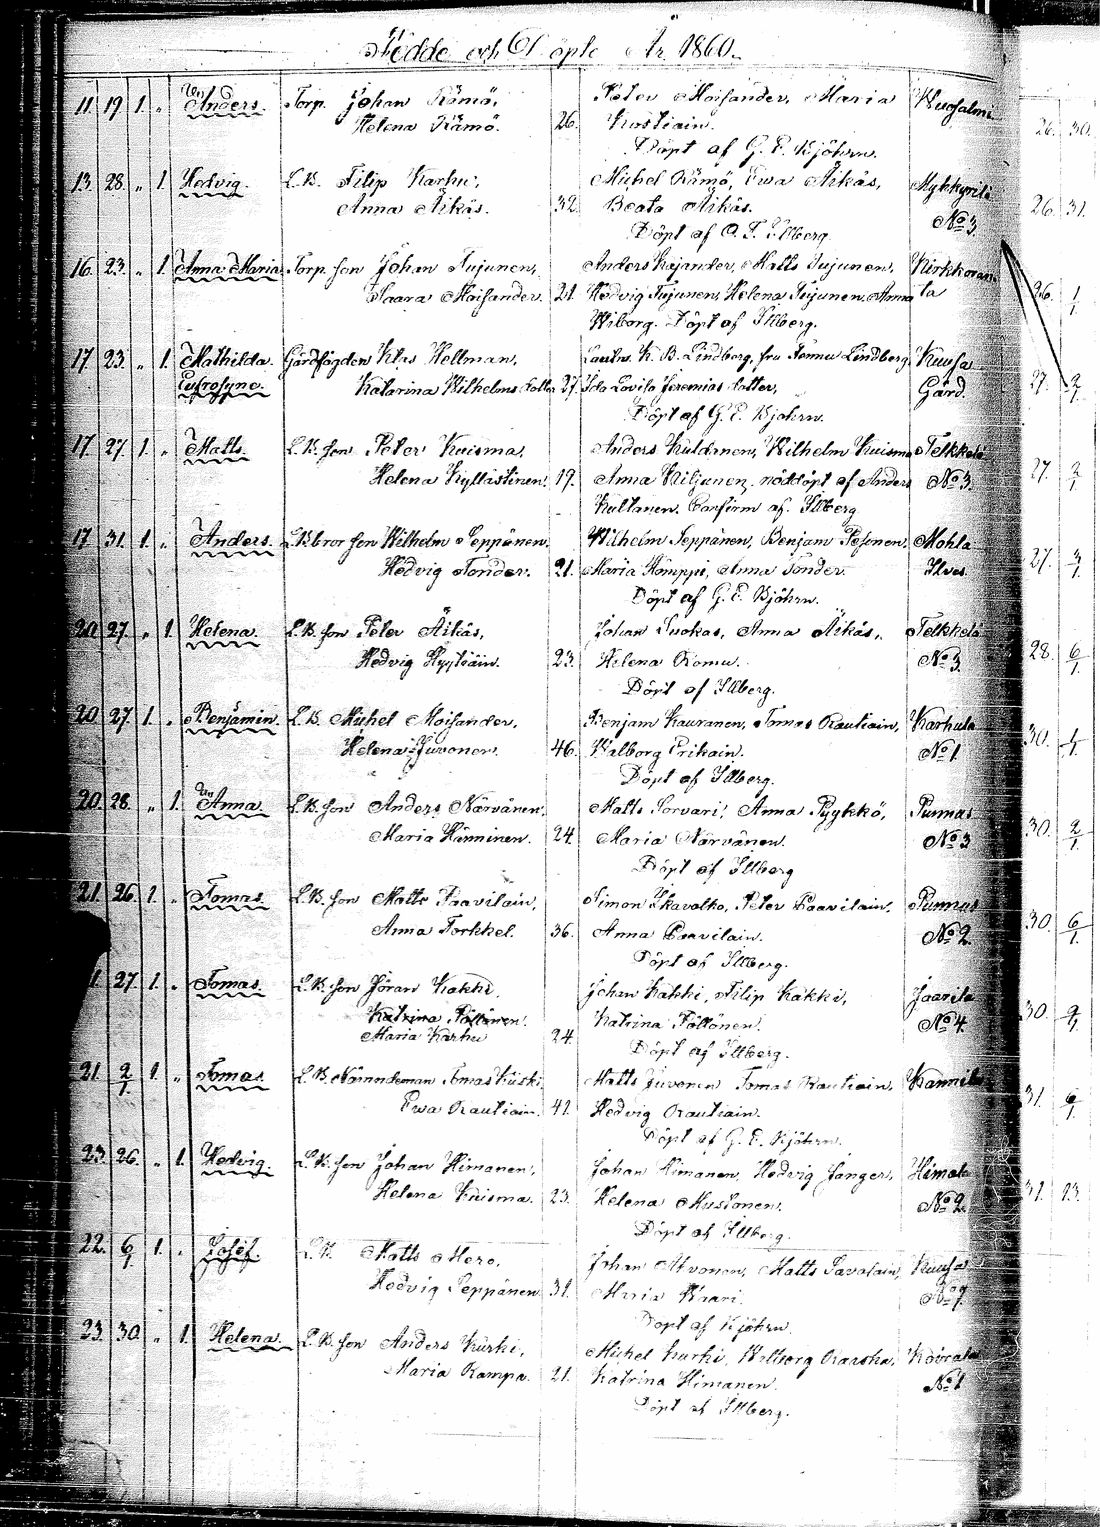 Födde och Döpte År 1860.
11. 19 1. „ Anders. Torp. Johan Rämö, Peter Moisander, Maria Kuosalmi
Helena Rämö. 26. Kostiain.
Döpt af G. E. Bjöhrn.
13. 28. „ 1. Hedvig. L.B. Filip Karhu, Michel Rämö, Ewa Äikäs, Mykkyrilä
Anna Äikäs. 32. Beata Äikäs. No 3.
Döpt af O. F. Illberg.
16. 23. „ 1. Anna Maria Torp. son Johan Tujunen, Anders Kajander, Matts Tujunen, Kirkkoran
Saara Moisander. 21. Hedvig Tujunen, Helena Tujunen, Anna ta
Wiborg. Döpt af Illberg.
17. 23. „ 1. Mathilda Gårdsfogden Klas Hellman, K. B. Lindberg, fru Lindberg Kuusa
Eufrosyne. Katarina Wilhelms dotter 27. Ida Lovisa Jeremias dotter, Gård.
Döpt af G. E. Bjöhrn.
17. 27. 1. „ Matts. L.B. son Peter Kuisma, Anders Kuldanen, Wilhelm Kuisma Telkkälä
Helena Kyllästinen. 19. Anna Kiljunen, nöddöpt af Anders No 3.
Kultanen. Confirm af Illberg
17. 31. 1. „ Anders. L.B. bror son Wilhelm Seppänen. Wilhelm Seppänen, Benjam Pesonen, Mohla
Hedvig Tonder. 21. Maria Kömppi, Anna Tonder. Ilves.
Döpt af G. E. Bjöhrn.
20. 27. „ 1. Helena. L.B. son Peter Äikäs, Johan Suokas, Anna Äikäs, Telkkälä
Hedvig Hyytiäin. 23. Helena Romu. No 3.
Döpt af Illberg.
20. 27. 1. „ Benjamin. L.B. Michel Moisander, Benjam Kauranen, Tomas Rautiain, Karhula
Helena Juvonen. 46. Walborg Erikain. No 1
Döpt af Illberg.
20. 28. „ 1. Anna. L.B. son Anders Närvänen, Matts Sorvari, Anna Pyykkö, Punnus
Maria Hänninen. 24. Maria Närvänen. No 3
Döpt af Illberg
21. 26. 1. „ Tomas. L.B. son Matts Paavilain, Simon Skavalko, Peter Paavilain, Punnus
Anna Torkkel. 36. Anna Paavilain. No 2.
Döpt af Illberg.
27. 1. „ Tomas. L.B. son Jöran Kakki, Johan Kakki, Filip Kakki, Jaarila
Katrina Pöllönen.
Maria Karhu 24. Katrina Pöllönen. No 4.
Döpt af Illberg.
21. 2/1 1. „ Tomas L.B. Nämndeman Tomas Kiiski, Matts Juvonen Tomas Rautiain, Kannila
Ewa Rautiain. 41. Hedvig Rautiain.
Döpt af G. E. Bjöhrn.
23. 26. „ 1. Hedvig. L.B. son Johan Himanen, Johan Himanen, Hedvig Jänger, Himala
Helena Kuisma. 23. Helena Mustonen. No 2.
Döpt af Illberg.
22. 6/1 1. „ Josef. L.B. Matts Mero, Johan Ahvonen, Matts Savolain, Kuusa
Hedvig Seppänen 31. Maria No 9.
Döpt af Bjöhrn.
23. 30. „ 1. Helena. L.B. son Anders Kurki, Michel Kurki, Walborg Karska, Koirala
Maria Kampa. 21. Katrina Himanen. No 1
Döpt af Illberg.
26. 30.
26. 31.
26. 1/1
27. 2/1
27. 2/1
27. 3/1
28. 6/1
30. 1/1
30. 2/1
30. 6/1
30. 9/1
31. 6/1
31. 13.